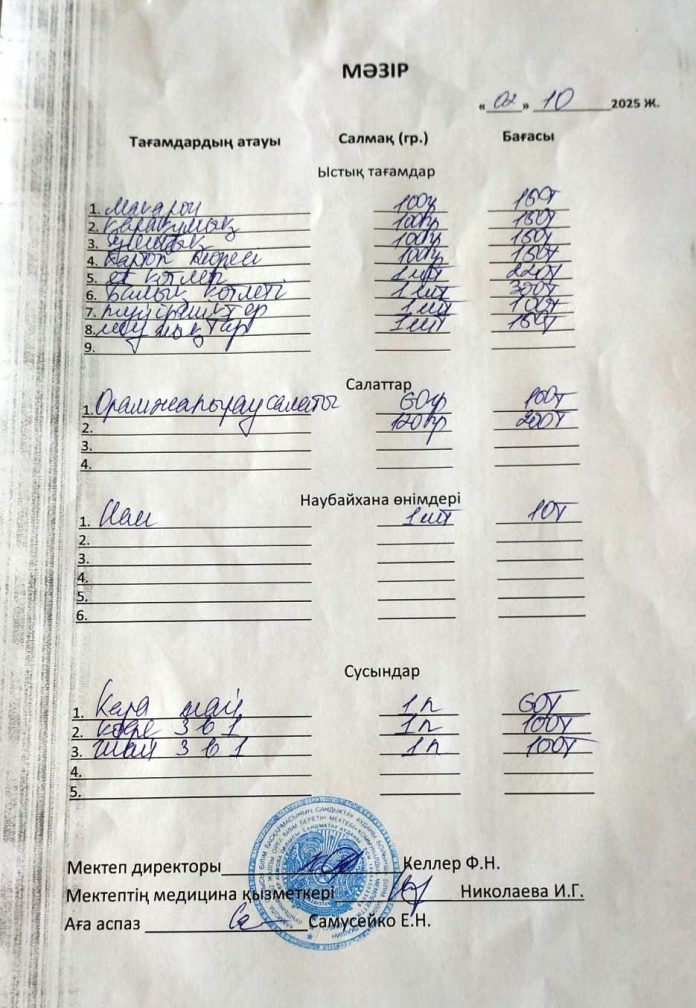 МӘЗІР
« 02 » 10 2025 Ж.
Тағамдардың атауы Салмақ (гр.) Бағасы
Ыстық тағамдар
1. Макарон 100гр 150т
2. қарақұмық 100гр 150т
3. 100гр 150т
4. Картоп 100гр 150т
5. ет котлет 1 шт 220т
6. Балық котлеті 1 шт 300т
7. 1 шт 100т
8. 1 шт 150т
9.
Салаттар
1. Орамжапырақ салаты 60гр 100т
2. 120гр 200т
3.
4.
Наубайхана өнімдері
1. Нан 1 шт 10т
2.
3.
4.
5.
6.
Сусындар
1. Кара шай 1п 60т
2. кофе 3 в 1 1п 100т
3. шай 3 в 1 1п 100т
4.
5.
Мектеп директоры Келлер Ф.Н.
Мектептің медицина қызметкері Николаева И.Г.
Аға аспаз Самусейко Е.Н.